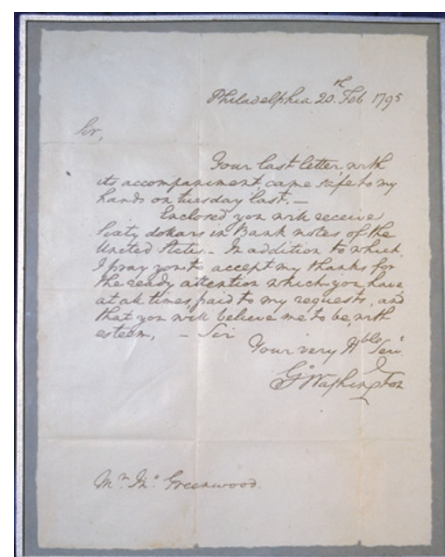 Philadelphia 20th Feb 1795
Sir,
Your last letter with
its accompaniment came safe to my
hands on tuesday last. —
Enclosed you will receive
sixty dollars in Bank notes of the
United States. — In addition to which,
I pray you to accept my thanks for
the ready attention which you have
at all times, paid to my requests, and
that you will believe me to be, with
esteem, — Sir
Your very Hble Serv.
Go Washington
Mr. Jno. Greenwood.